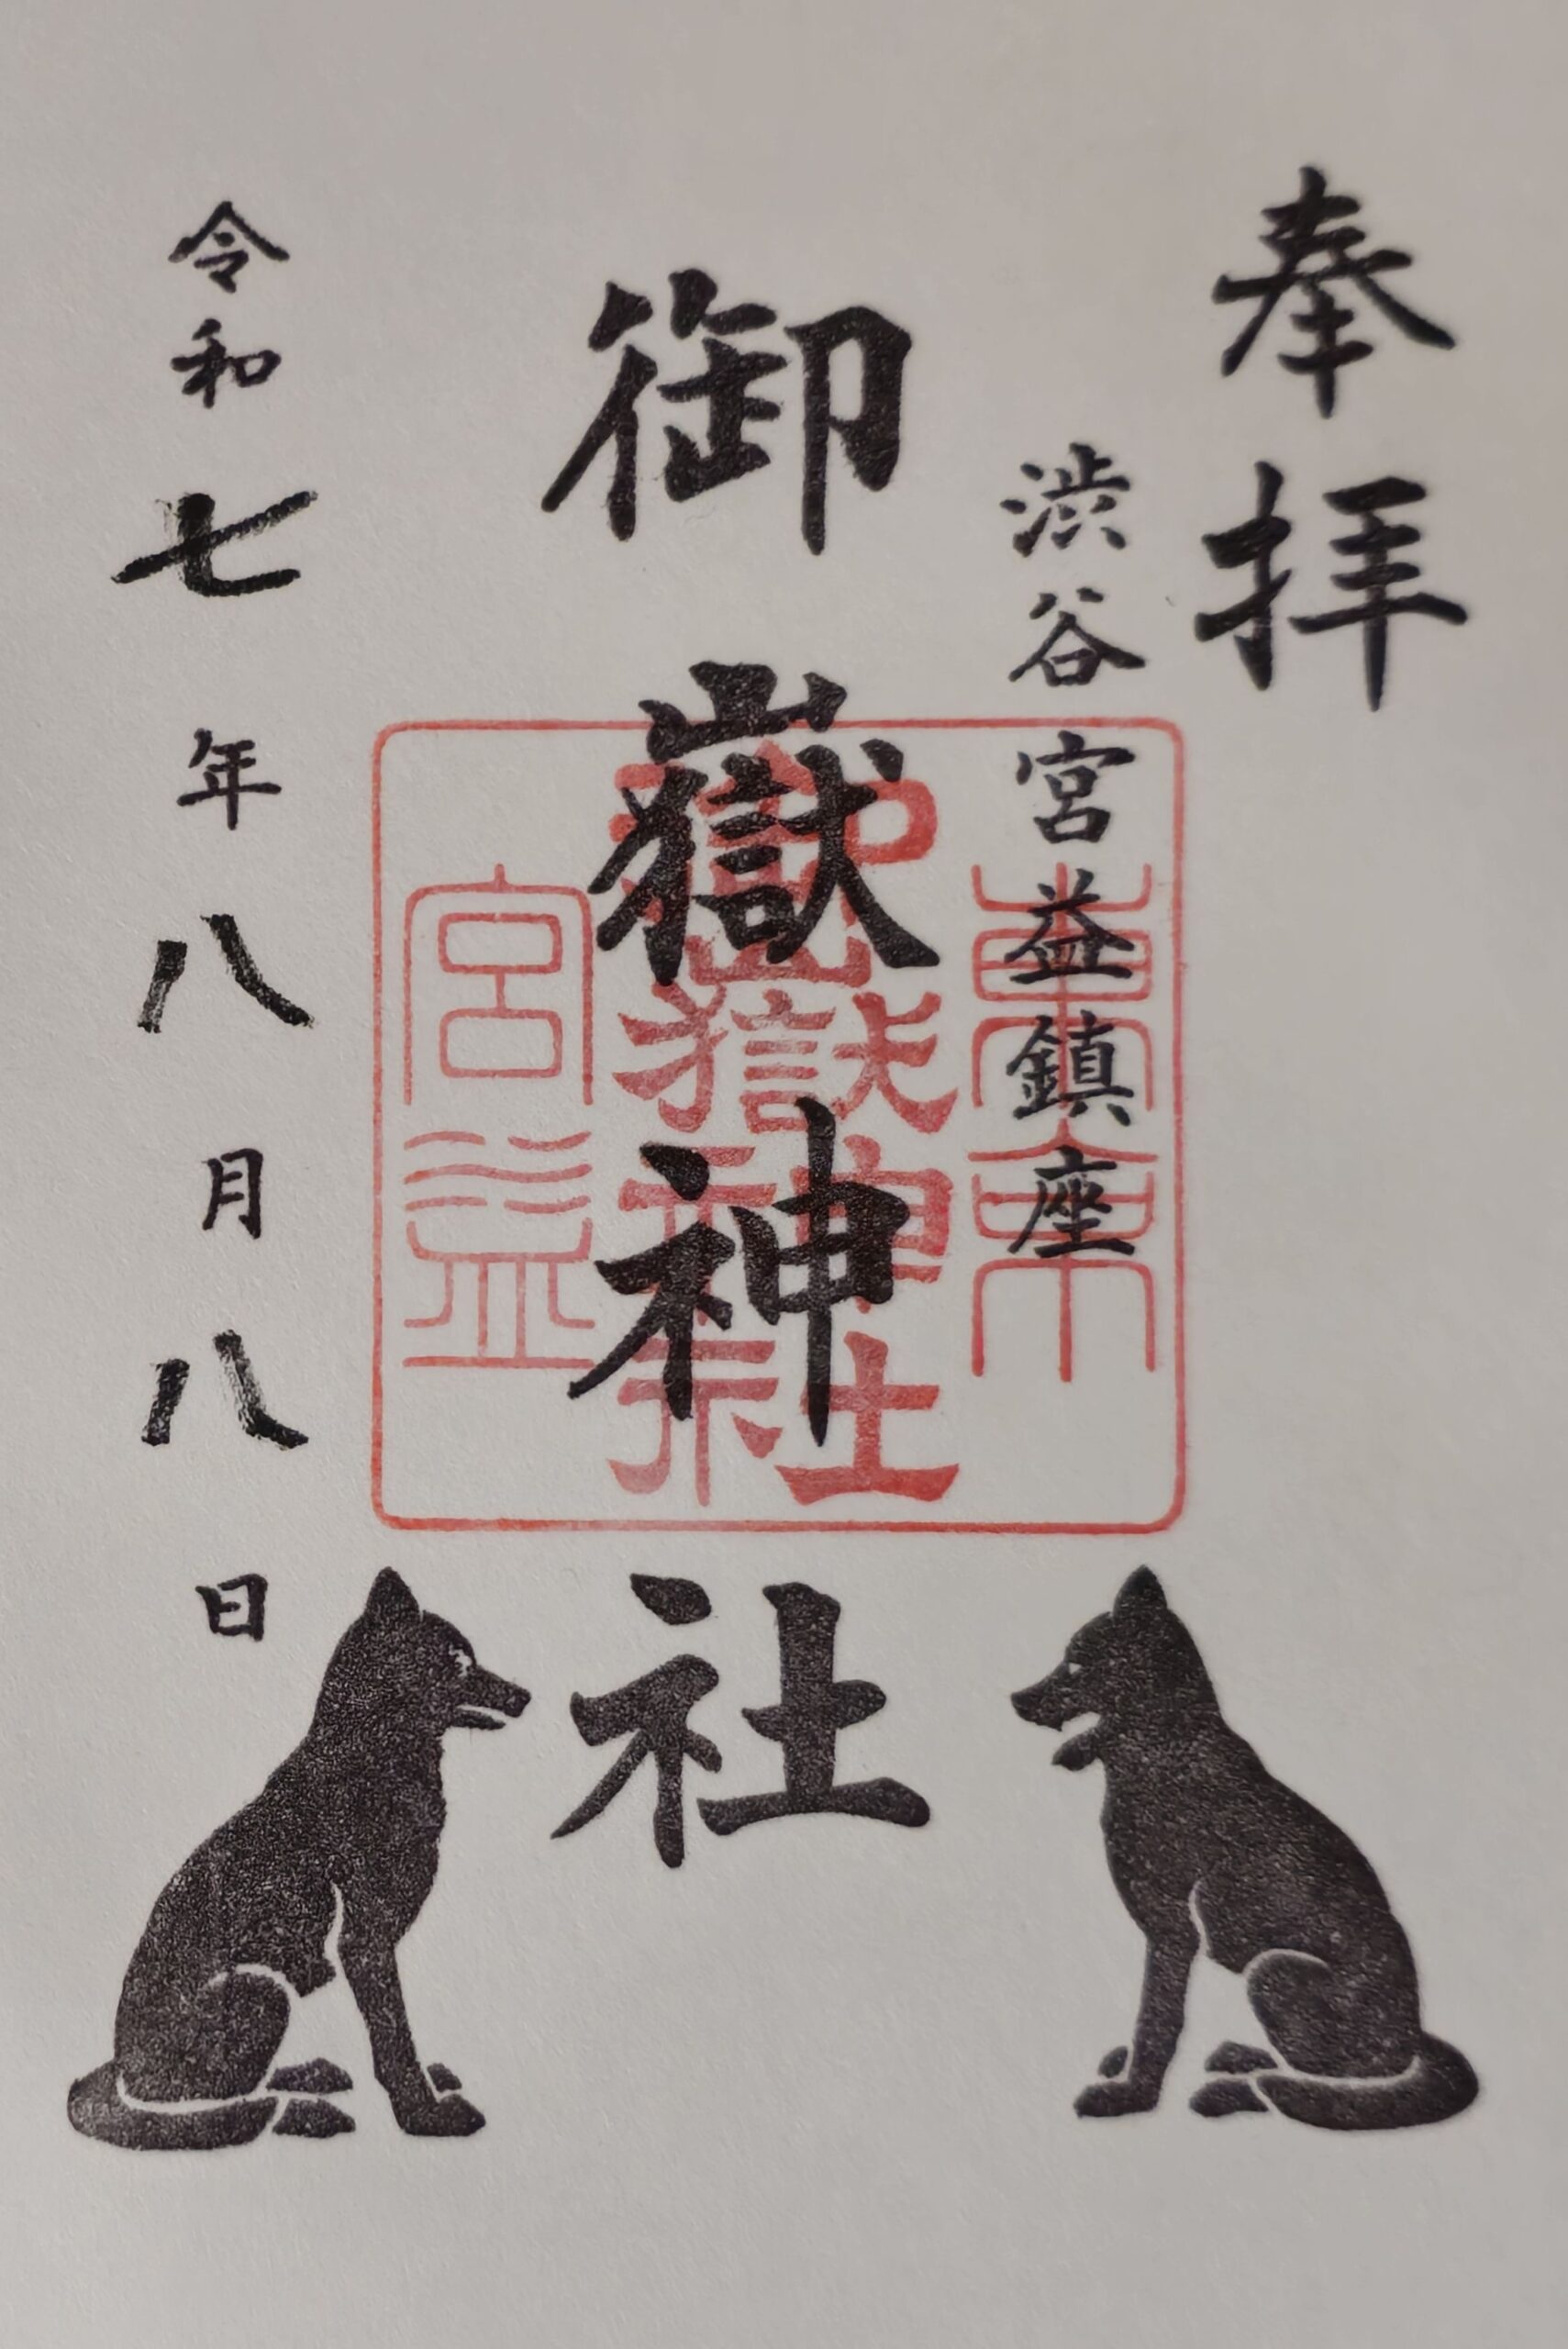 奉拝
渋谷宮益鎮座
御嶽神社
東京
宮益
御嶽神社
令和七年八月八日